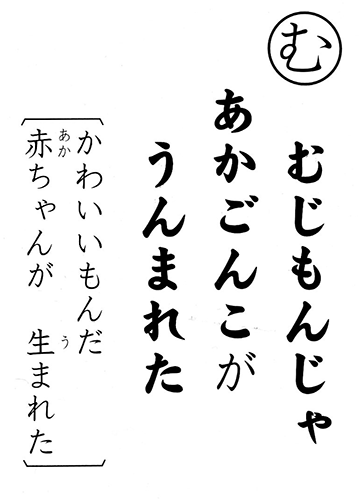 む
むじもんじゃ
あかごんこが
うんまれた
かわいいもんだ
赤ちゃんが　生まれた
あか
う